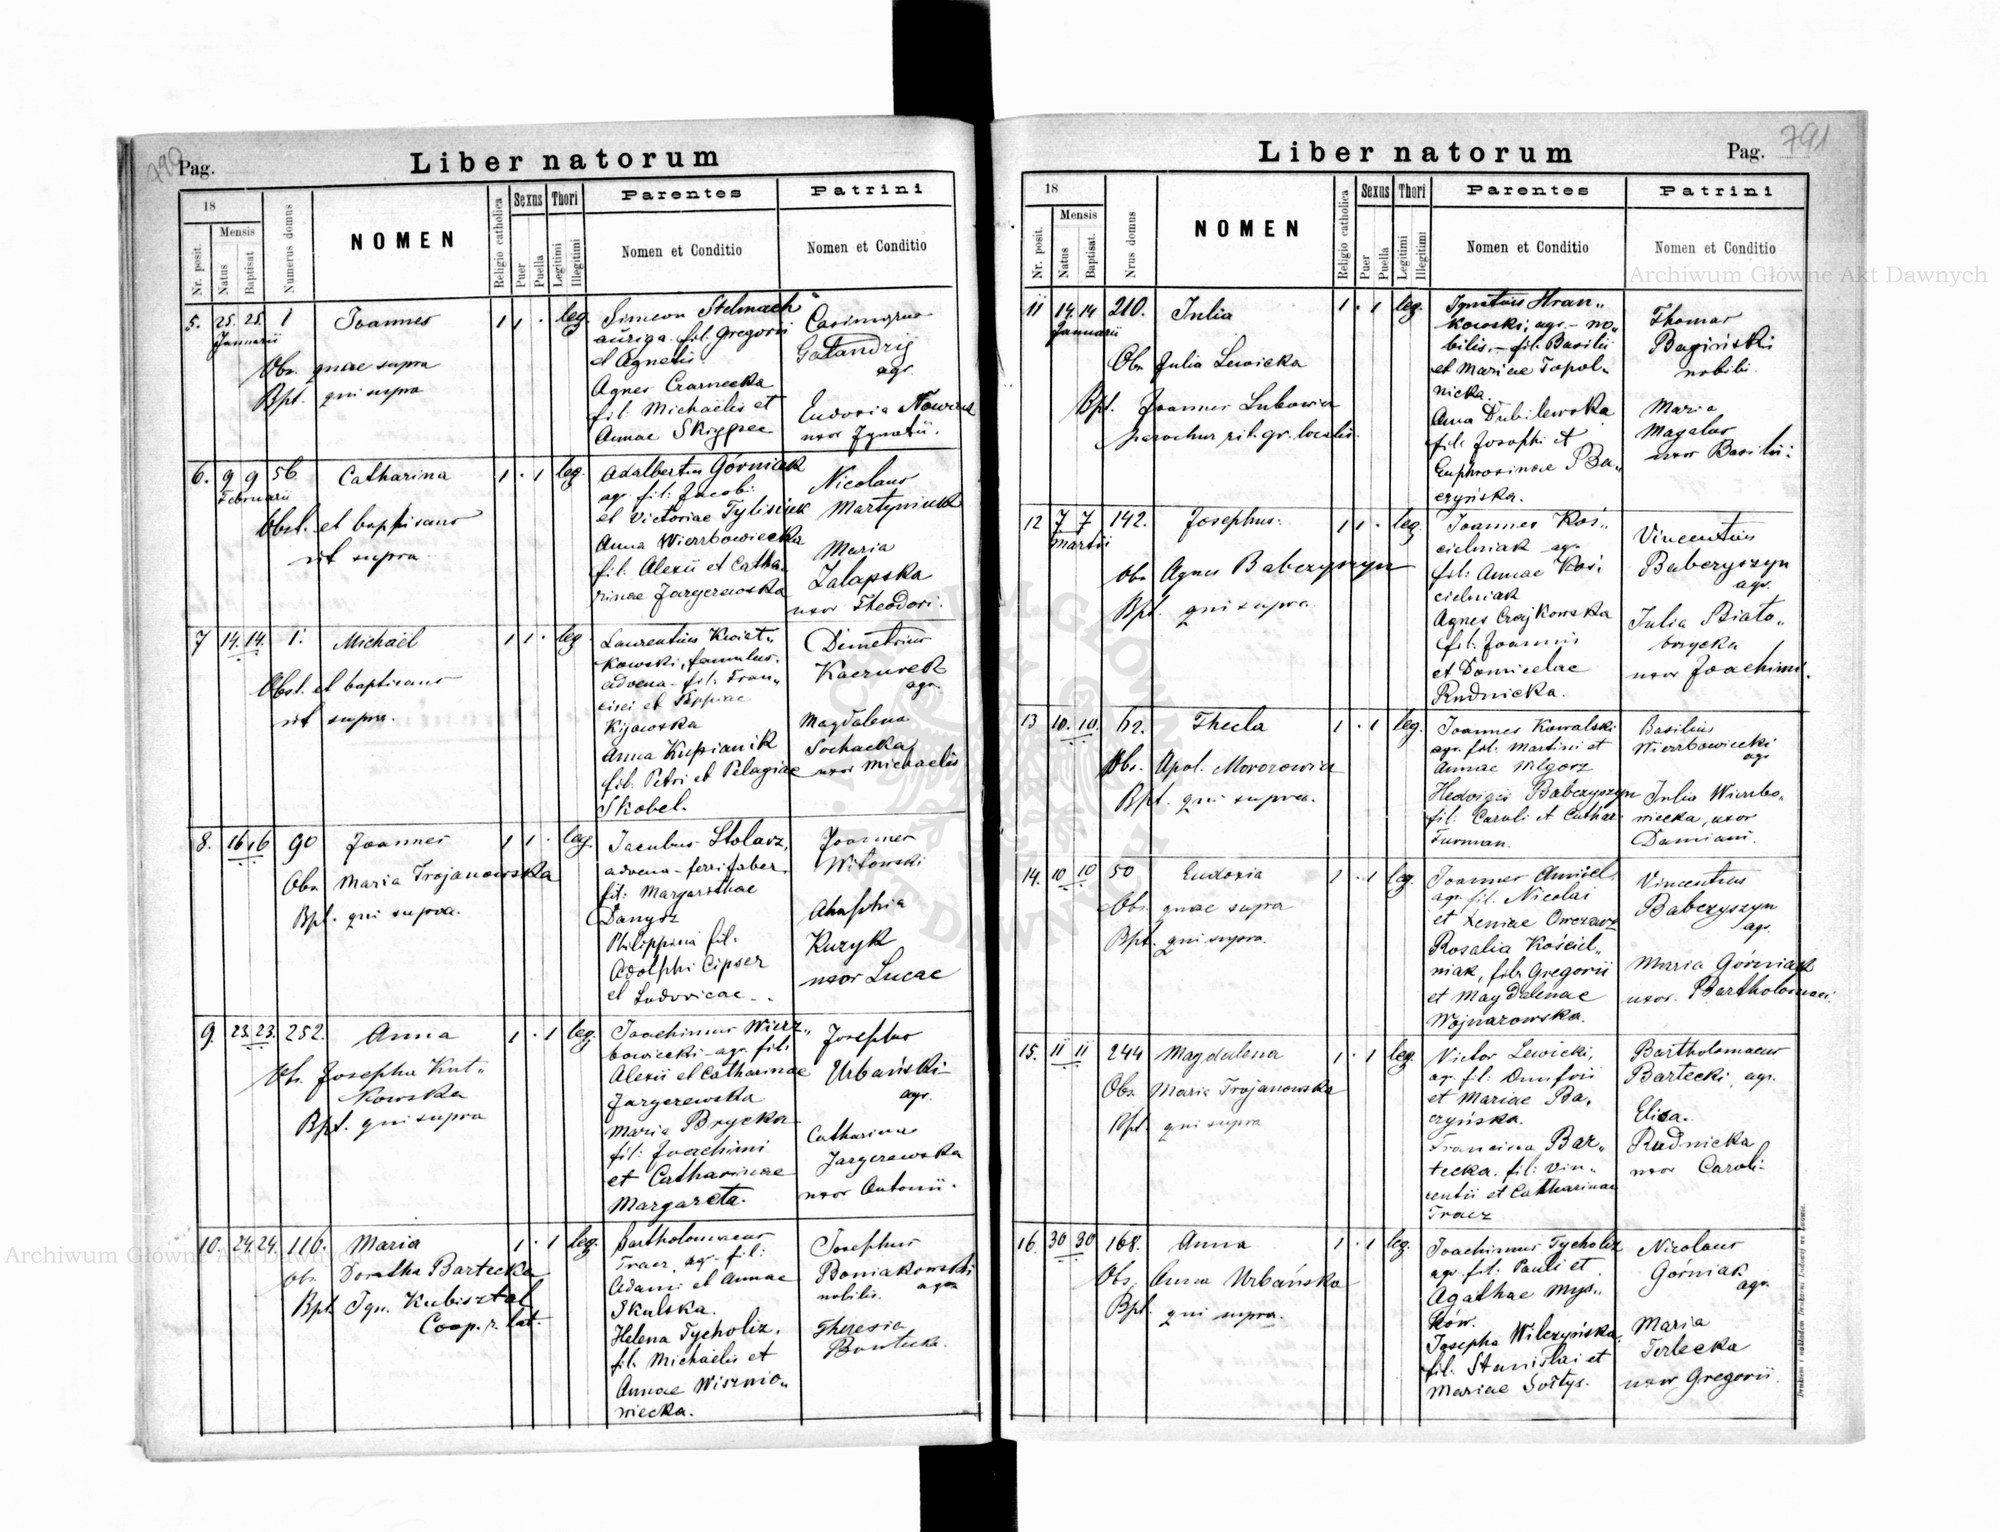 790
Pag.
Liber natorum
18
Mensis
Nr. posit.
Natus
Baptisat.
Numerus domus
NOMEN
Religio catholica
Sexus
Puer
Puella
Thori
Legitimi
Illegitimi
Parentes
Nomen et Conditio
Patrini
Nomen et Conditio
5. 25. 25. 1 Joannes 1 1 . leg.
Januarii
Obs. quae supra
Bpt. qui supra
Simeon Stelmach
auriga fil. Gregorii
et Agnetis
Agnes Czarnecka
fil. Michaëlis et
Annae Skrzypiec
Casimirus
agr.
Eudoxia
uxor Ignatii.
6. 9 9 56 Catharina 1 . 1 leg.
Februarii
Obst. et baptisans
ut supra
Adalbertus Górniak
agr. fil. Jacobi
et Victoriae Tylisiuk
Anna Wierzbowiecka
fil. Alexii et Catha-
rinae Jargerewska
Nicolaus
Martyniuk
Maria
Zalapska
uxor Theodori.
7 14. 14. 1. Michaël 1 1 . leg.
Obst. et baptisans
ut supra.
Laurentius Kwiat„
kowski, famulus.
advena - fil. Fran„
cisci et
Kijowska
Anna Kupianik
fil. Petri et Pelagiae
Skobel.
Demetrius
Kaczurek
agr.
Magdalena
Sochacka
uxor Michaelis
8. 16 16 90 Joannes 1 1 . leg.
Obs. Maria Trojanowska
Bpt. qui supra.
Jacobus Stolarz,
advena - ferrifaber.
fil. Margarithae
Danysz
Philippina fil.
Adolphi Cipser
et Ludovicae -.
Joannes
Witowski
Ahaphia
Kuzyk
uxor Lucae
9. 23. 23. 252. Anna 1 . 1 leg.
Obs. Josepha Kut„
kowska
Bpt. qui supra
Joachimus Wierz„
bowiecki - agr. fil.
Alexii et Catharinae
Jargerewska
Maria Brycka
fil. Joachimi
et Catharinae
Margareta.
Josephus
Urbański -
agr.
Catharina
Jargerewska
uxor Antonii.
10. 24. 24. 116. Maria 1 . 1 leg.
Obs. Dorotha Bartecka
Bpt. Ign. Kubisztal
Coop. r. lat.
Bartholomaeus
Tracz, agr. fil.
Adami et Annae
Skulska.
Helena Tycholiz,
fil. Michaëlis et
Annae Wisznio„
wiecka.
Josephus
Boniakowski
nobilis. agr.
Theresia
Bartecka.
791
Liber natorum
Pag.
18
Mensis
Nr. posit.
Natus
Baptisat.
Nrus domus
NOMEN
Religio catholica
Sexus
Puer
Puella
Thori
Legitimi
Illegitimi
Parentes
Nomen et Conditio
Patrini
Nomen et Conditio
11 14. 14 210. Julia 1 . 1 leg.
Januarii
Obs Julia Lewicka
Bpt. Joannes Lubowicz
parochus rit. gr. localis.
Ignatius Hran„
kowski, agr. - no„
bilis. - fil. Basilii
et Mariae Topol„
nicka.
Anna Dubilewska
fil. Josephi et
Euphrosinae Ba„
czyńska.
Thomas
Bagiński
nobili
Maria
Magalas
uxor Basilii.
12 7 7 142. Josephus. 1 1 . leg.
Martii
Obs Agnes Babczyszyn
Bpt. qui supra.
Joannes Koś„
cielniak agr.
fil. Annae Koś.
cielniak
Agnes Czajkowska
fil. Joannis
et Domicelae
Rudnicka.
Vincentius
Babczyszyn
agr.
Julia Biało„
brzycka
uxor Joachimi.
13 10. 10. 62. Thecla 1 . 1 leg.
Obs. Apol. Morozowicz
Bpt. qui supra.
Joannes Kowalski
agr. fil. Martini et
Annae Wilgorz
Hedvigis Babczyszyn
fil. Caroli et Cathar.
Furman.
Basilius
Wierzbowiecki
agr
Julia Wierzbo„
wiecka, uxor
Damiani.
14. 10 10 50 Eudoxia 1 . 1 leg.
Obs. quae supra
Bpt. qui supra.
Joannes
agr. fil. Nicolai
et Xeniae Owczarz
Rosalia Kościel„
niak, fil. Gregorii
et Magdalenae
Wojnarowska.
Vincentius
Babczyszyn
agr.
Maria Górniak
uxor. Bartholomaei
15. 11 11 244 Magdalena 1 . 1 leg.
Obs Maria Trojanowska
Bpt. qui supra
Victor Lewicki,
agr. fil. Onufrii
et Mariae Ba„
czyńska.
Francisca Bar„
tecka. fil. Vin„
centii et Catharinae
Tracz
Bartholomaeus
Bartecki, agr.
Elisa.
Rudnicka
uxor Caroli -
16. 30 30 168. Anna 1 . 1 leg.
Obs. Anna Urbańska
Bpt. qui supra.
Joachimus Tycholiz
agr. fil. Pauli et
Agathae Mys„
ków.
Josepha Wilczyńska,
fil. Stanislai et
Mariae Sołtys.
Nicolaus
Górniak
agr.
Maria
Terlecka
uxor Gregorii.
Drukiem i nakładem Drukarni Ludowej we Lwowie.
Archiwum Główne Akt Dawnych
Archiwum Główne Akt Dawnych